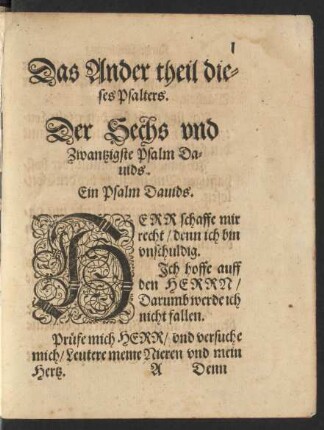 1
Das Ander theil die-
ses Psalters.
Der Sechs vnd
Zwantzigste Psalm Da-
uids.
Ein Psalm Dauids.
HERR schaffe mir
recht / denn ich bin
vnschuldig.
Ich hoffe auff
den HERRN /
Darumb werde ich
nicht fallen.
Prüfe mich HERR / vnd versuche
mich / Leutere meine Nieren vnd mein
Hertz. A Denn